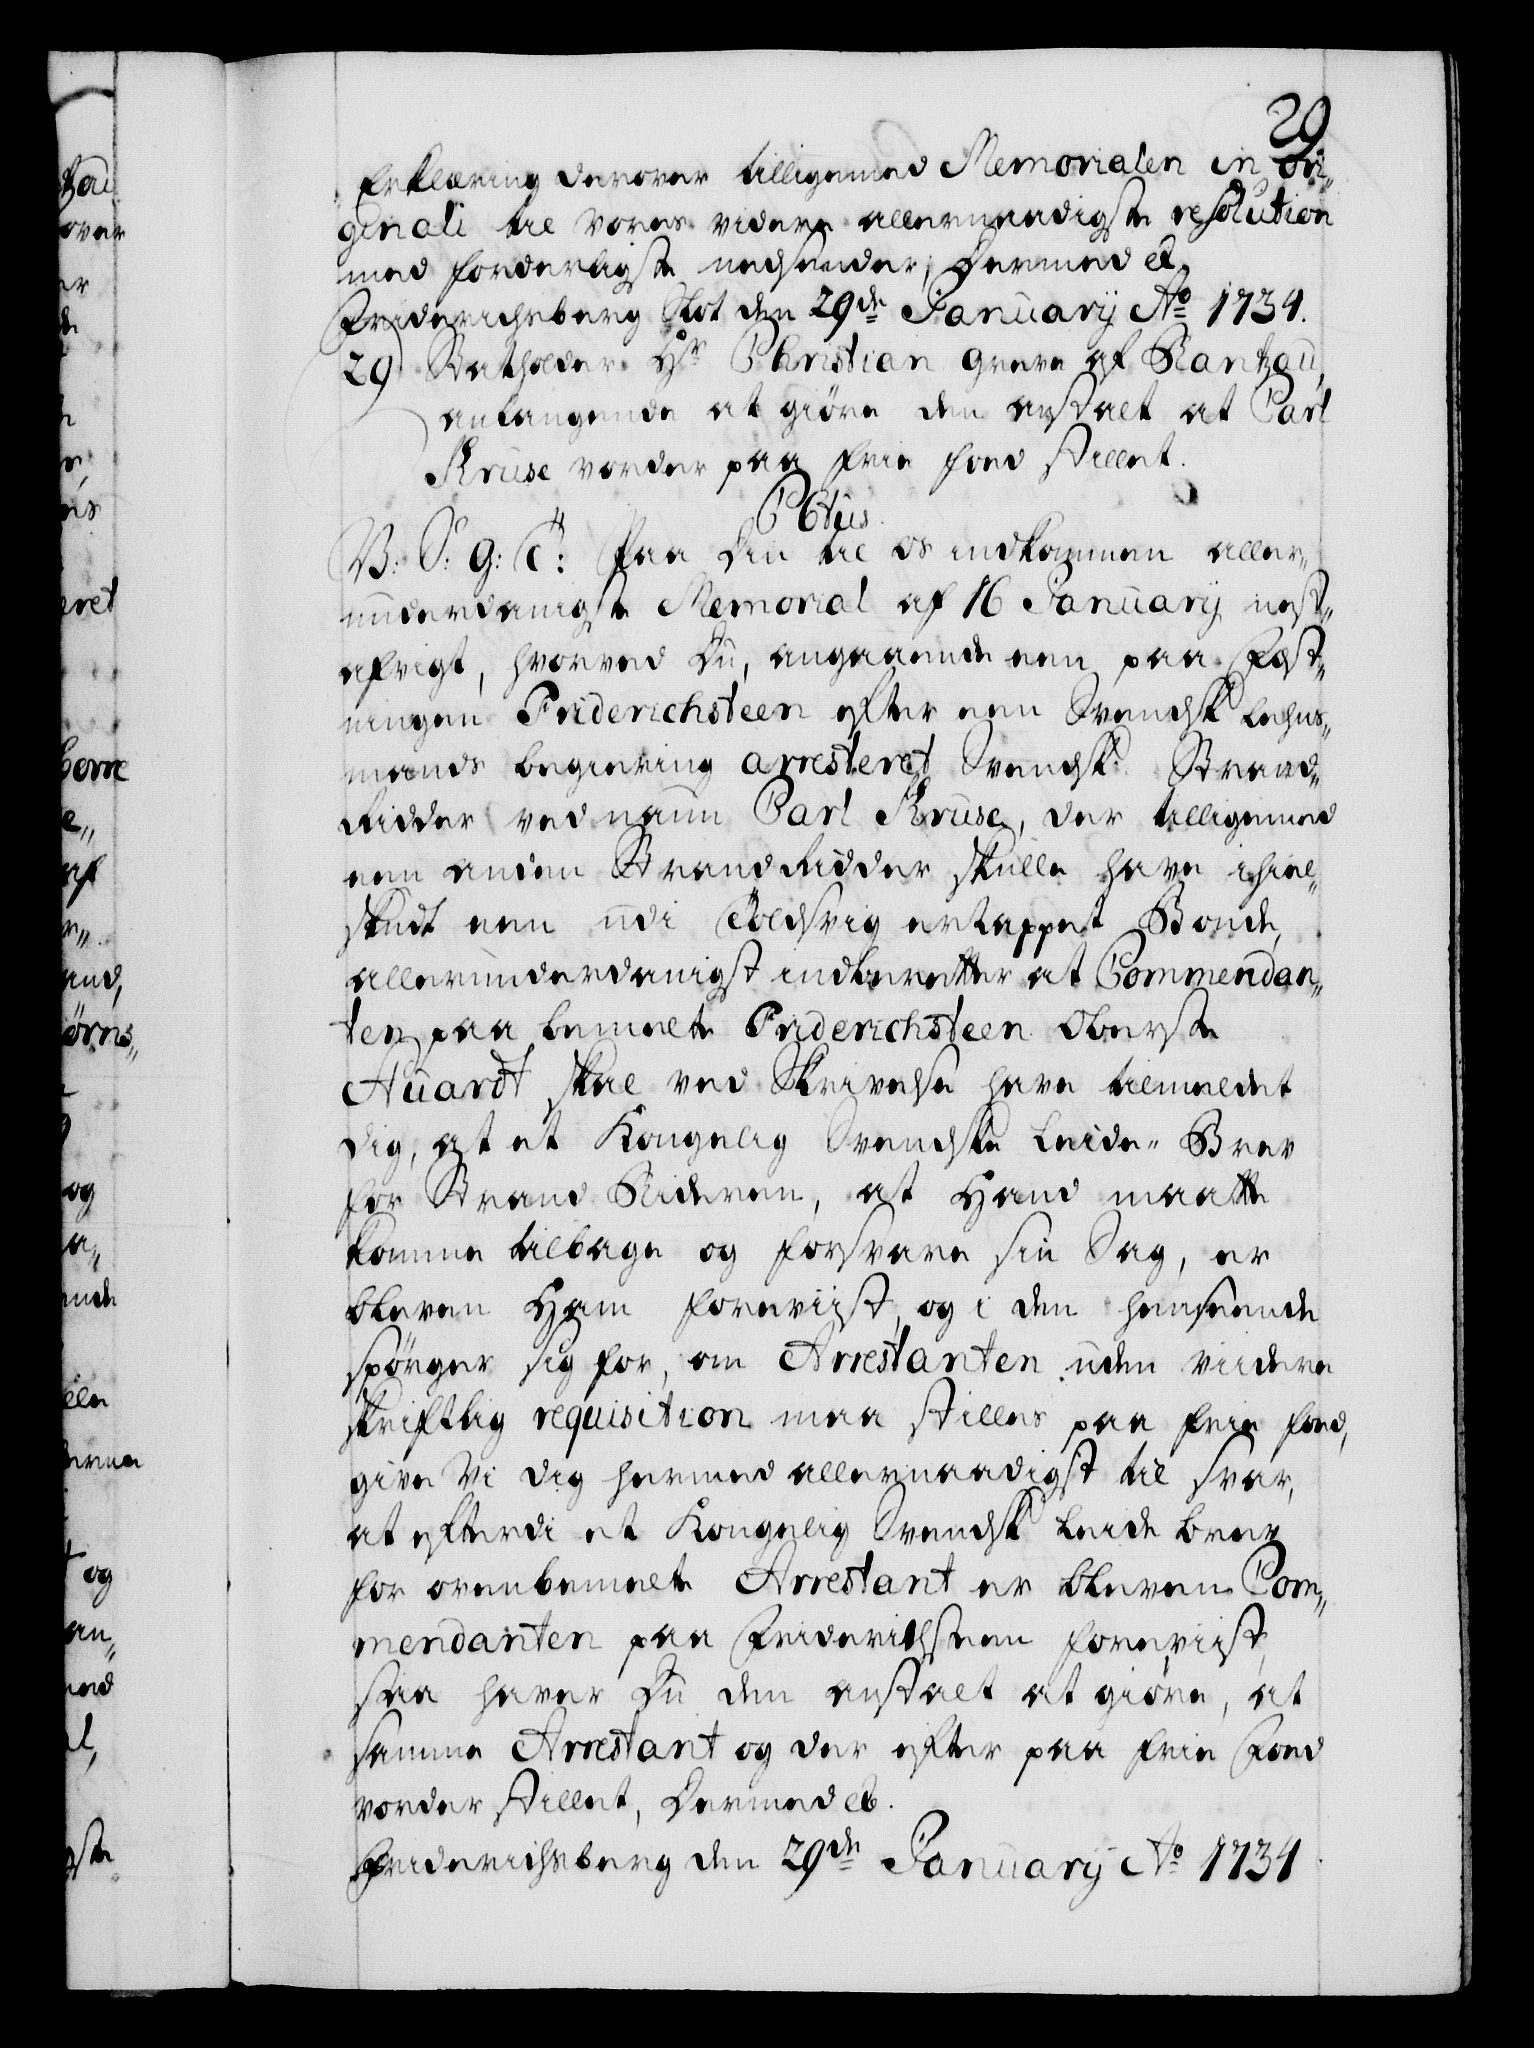 29
Erklæring derover tilligemed Memorialen in ori„
ginali til vores videre allernaadigste resolution
med forderligste nedsender, Dermed et
Friderichsberg Slot den 29de Januarij Ao 1734.
29 Statholder Hr Christian Greve af Rantzau,
anlangende at giöre den anstalt at Carl
Kruse vorder paa frie foed stillet.
C 6tus
V: S: G: T: Paa Din til os indkommen aller„
underdanigste Memorial af 16 Januarij nest„
afvigt, hvorved Du, angaaende een paa Fæst„
ningen Friderichsteen efter een Svendsk Lehns„
mands begiering arresteret Svendsk Strand„
Ridder ved naun Carl Kruse, der tilligemed
een anden StrandRidder skulle have ihiel„
skudt een udi Toldsvig ertappet Bonde,
allerunderdanigst indberetter at Commendan„
ten paa bemelte Friderichsteen Oberste
Huardt skal ved Skrivelse have tilmeldet
dig, at et Kongelig Svendske Leide„ Brev
for Strand Rideren, at Hand maatte
komme tilbage og forsvare sin Sag, er
bleven Ham foreviist, og i den henseende
spörger sig for, om Arrestanten uden viidere
skriftlig requisition maa stilles paa frie foed,
give Vi dig hermed allernaadigst til svar,
at efterdi et Kongelig Svendsk Leide brev
for ovenbemelte Arrestant er bleven Com„
mendanten paa Friderichsteen foreviist,
saa haver Du den anstalt at giöre, at
samme Arrestant og der efter paa frie Foed
vorder stillet, Dermed etc.
Friderichsberg den 29de Januarij Ao 1734